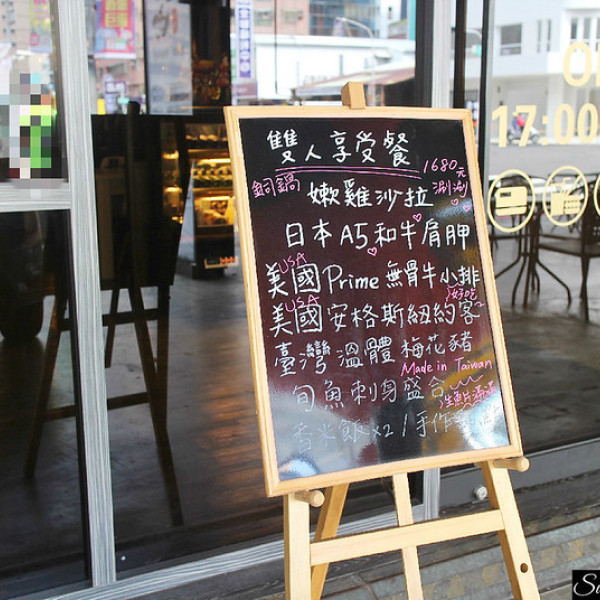 雙人享受餐
1680元
銅鍋
涮涮
嫩雞沙拉
日本A5和牛肩胛
USA
美國Prime無骨牛小排
好吃
USA
美國安格斯紐約客
臺灣溫體梅花豬
Made in Taiwan
旬魚刺身盛合
生魚片滿滿
香米飯x2/手作
17:00